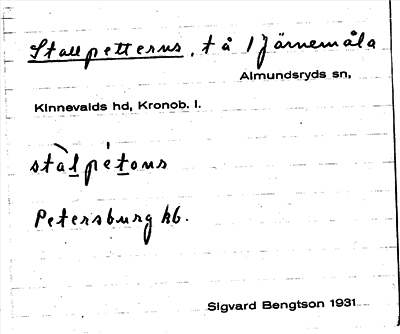 Stallpetterns, t å 1 Järnemåla
Almundsryds sn,
Kinnevalds hd, Kronob. l.
stàlpétəns
Petersburg kb.
Sigvard Bengtson 1931